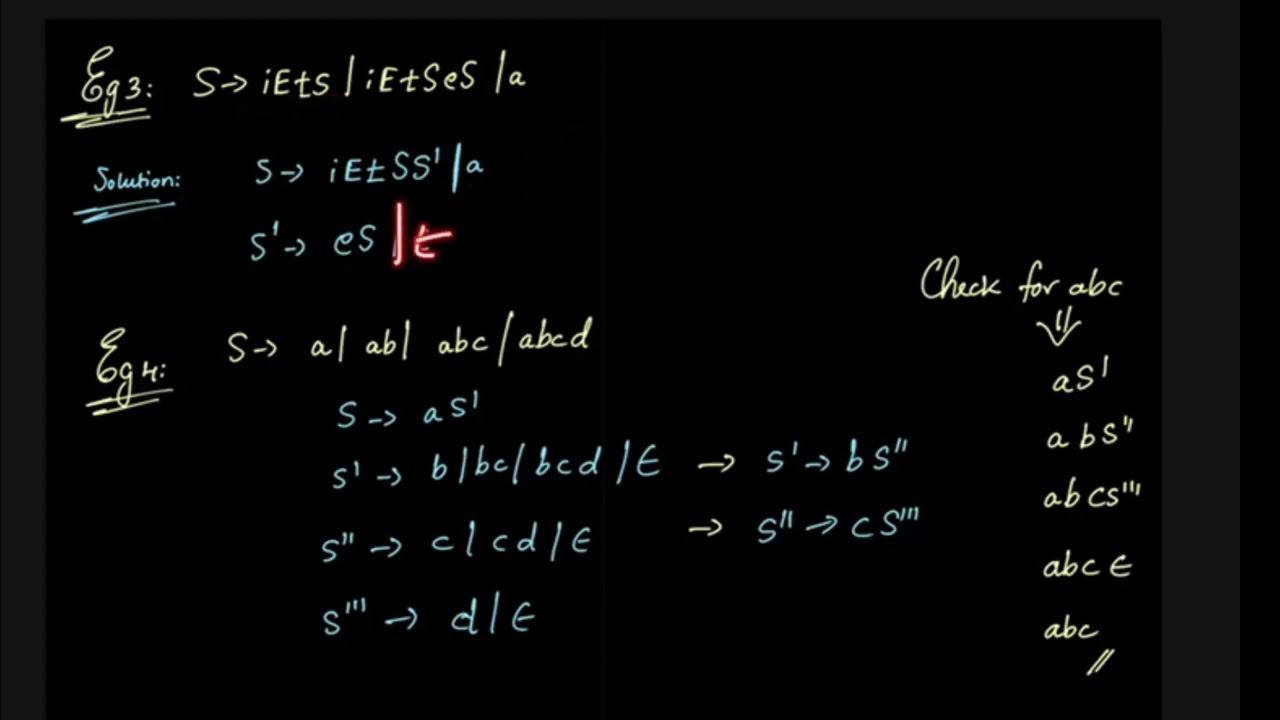 Eg 3: S → iEtS | iEtSeS | a
Solution: S → iEtSS' | a
S' → eS | ϵ
Check for abc
Eg 4: S → a | ab | abc | abcd
aS'
S → aS'
abS''
S' → b | bc | bcd | ϵ → S' → bS''
abcS'''
S'' → c | cd | ϵ → S'' → cS'''
abcϵ
S''' → d | ϵ
abc //